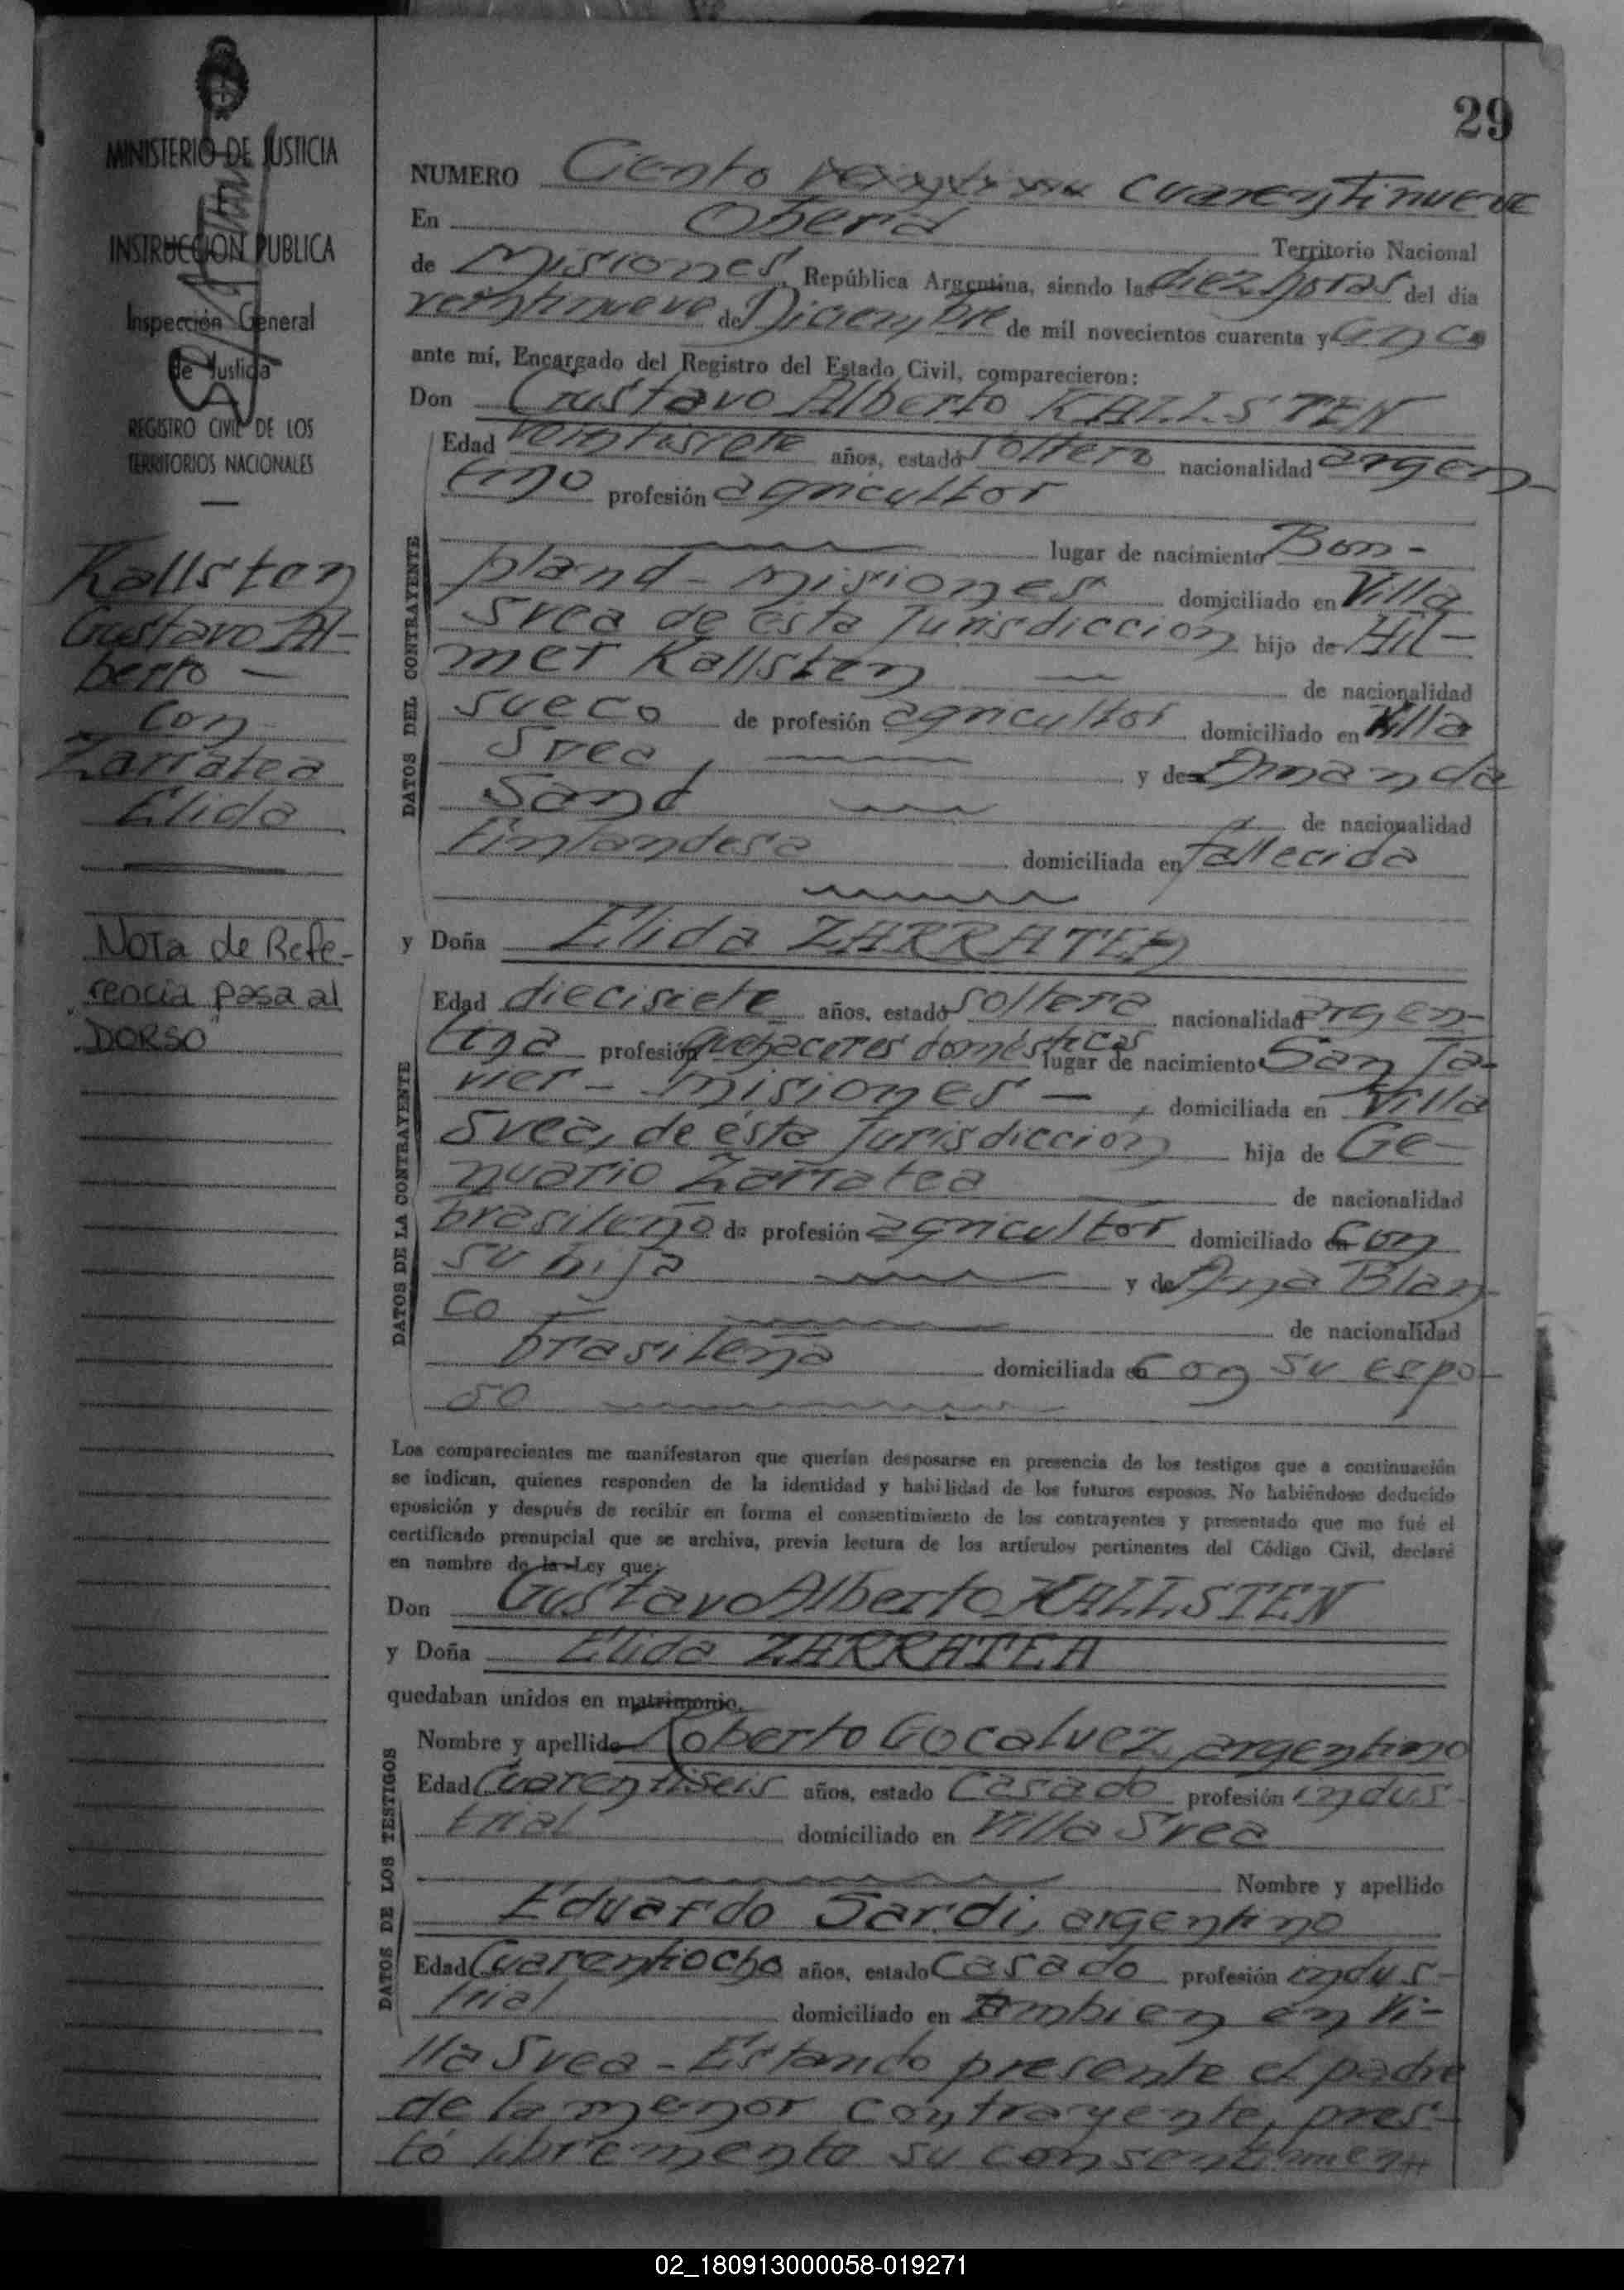 29
MINISTERIO DE JUSTICIA
INSTRUCCION PUBLICA
Inspección General
de Justicia
REGISTRO CIVIL DE LOS
TERRITORIOS NACIONALES
Kallsten
Gustavo Al-
berto —
con
Zarratea
Elida
Nota de Refe-
rencia pasa al
"DORSO"
NUMERO Ciento cuarentinueve
En Oberá Territorio Nacional
de Misiones, República Argentina, siendo las diez horas del día
veintinueve de Diciembre de mil novecientos cuarenta y cinco
ante mí, Encargado del Registro del Estado Civil, comparecieron:
Don Gustavo Alberto KALLSTEN
DATOS DEL CONTRAYENTE
Edad veintisiete años, estado soltero nacionalidad argen-
tino profesión agricultor
lugar de nacimiento Bon-
pland - Misiones domiciliado en Villa
Svea de ésta Jurisdiccion hijo de Hil-
mer Kallsten de nacionalidad
sueco de profesión agricultor domiciliado en Villa
Svea, y de Amanda
Sand de nacionalidad
Finlandesa domiciliada en fallecida
y Doña Elida ZARRATEA
DATOS DE LA CONTRAYENTE
Edad diecisiete años, estado soltera nacionalidad argen-
tina profesión quehaceres domésticos lugar de nacimiento San Ja-
vier - Misiones -, domiciliada en Villa
Svea, de ésta Jurisdiccion hija de Ge-
nuario Zarratea de nacionalidad
brasileño de profesión agricultor domiciliado en con
su hija y de Ana Blan-
co de nacionalidad
brasileña domiciliada en con su espo-
so
Los comparecientes me manifestaron que querían desposarse en presencia de los testigos que a continuación
se indican, quienes responden de la identidad y habilidad de los futuros esposos. No habiéndose deducido
oposición y después de recibir en forma el consentimiento de los contrayentes y presentado que me fué el
certificado prenupcial que se archiva, previa lectura de los artículos pertinentes del Código Civil, declaré
en nombre de la Ley que:
Don Gustavo Alberto KALLSTEN
y Doña Elida ZARRATEA
quedaban unidos en matrimonio.
DATOS DE LOS TESTIGOS
Nombre y apellido Roberto Gocalvez, argentino
Edad Cuarentiseis años, estado casado profesión indus-
trial domiciliado en Villa Svea
Nombre y apellido
Eduardo Sardi, argentino
Edad Cuarentiocho años, estado casado profesión indus-
trial domiciliado en tambien en Vi-
lla Svea - Estando presente el padre
de la menor contrayente, pres-
tó libremente su consentimien-
02_180913000058-019271